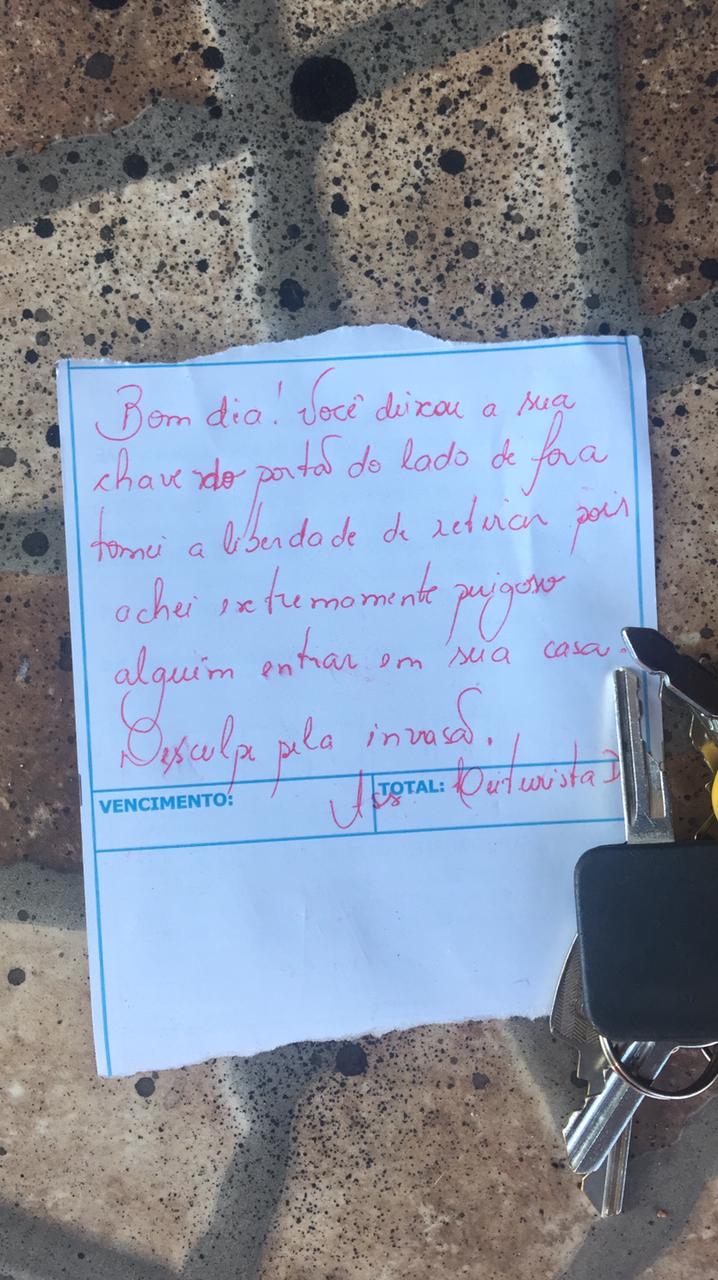 Bom dia! Você deixou a sua
chave do portão do lado de fora
tomei a liberdade de retirar pois
achei extremamente perigoso
alguém entrar em sua casa.
Desculpe pela invasão.
VENCIMENTO:
TOTAL:
Ass